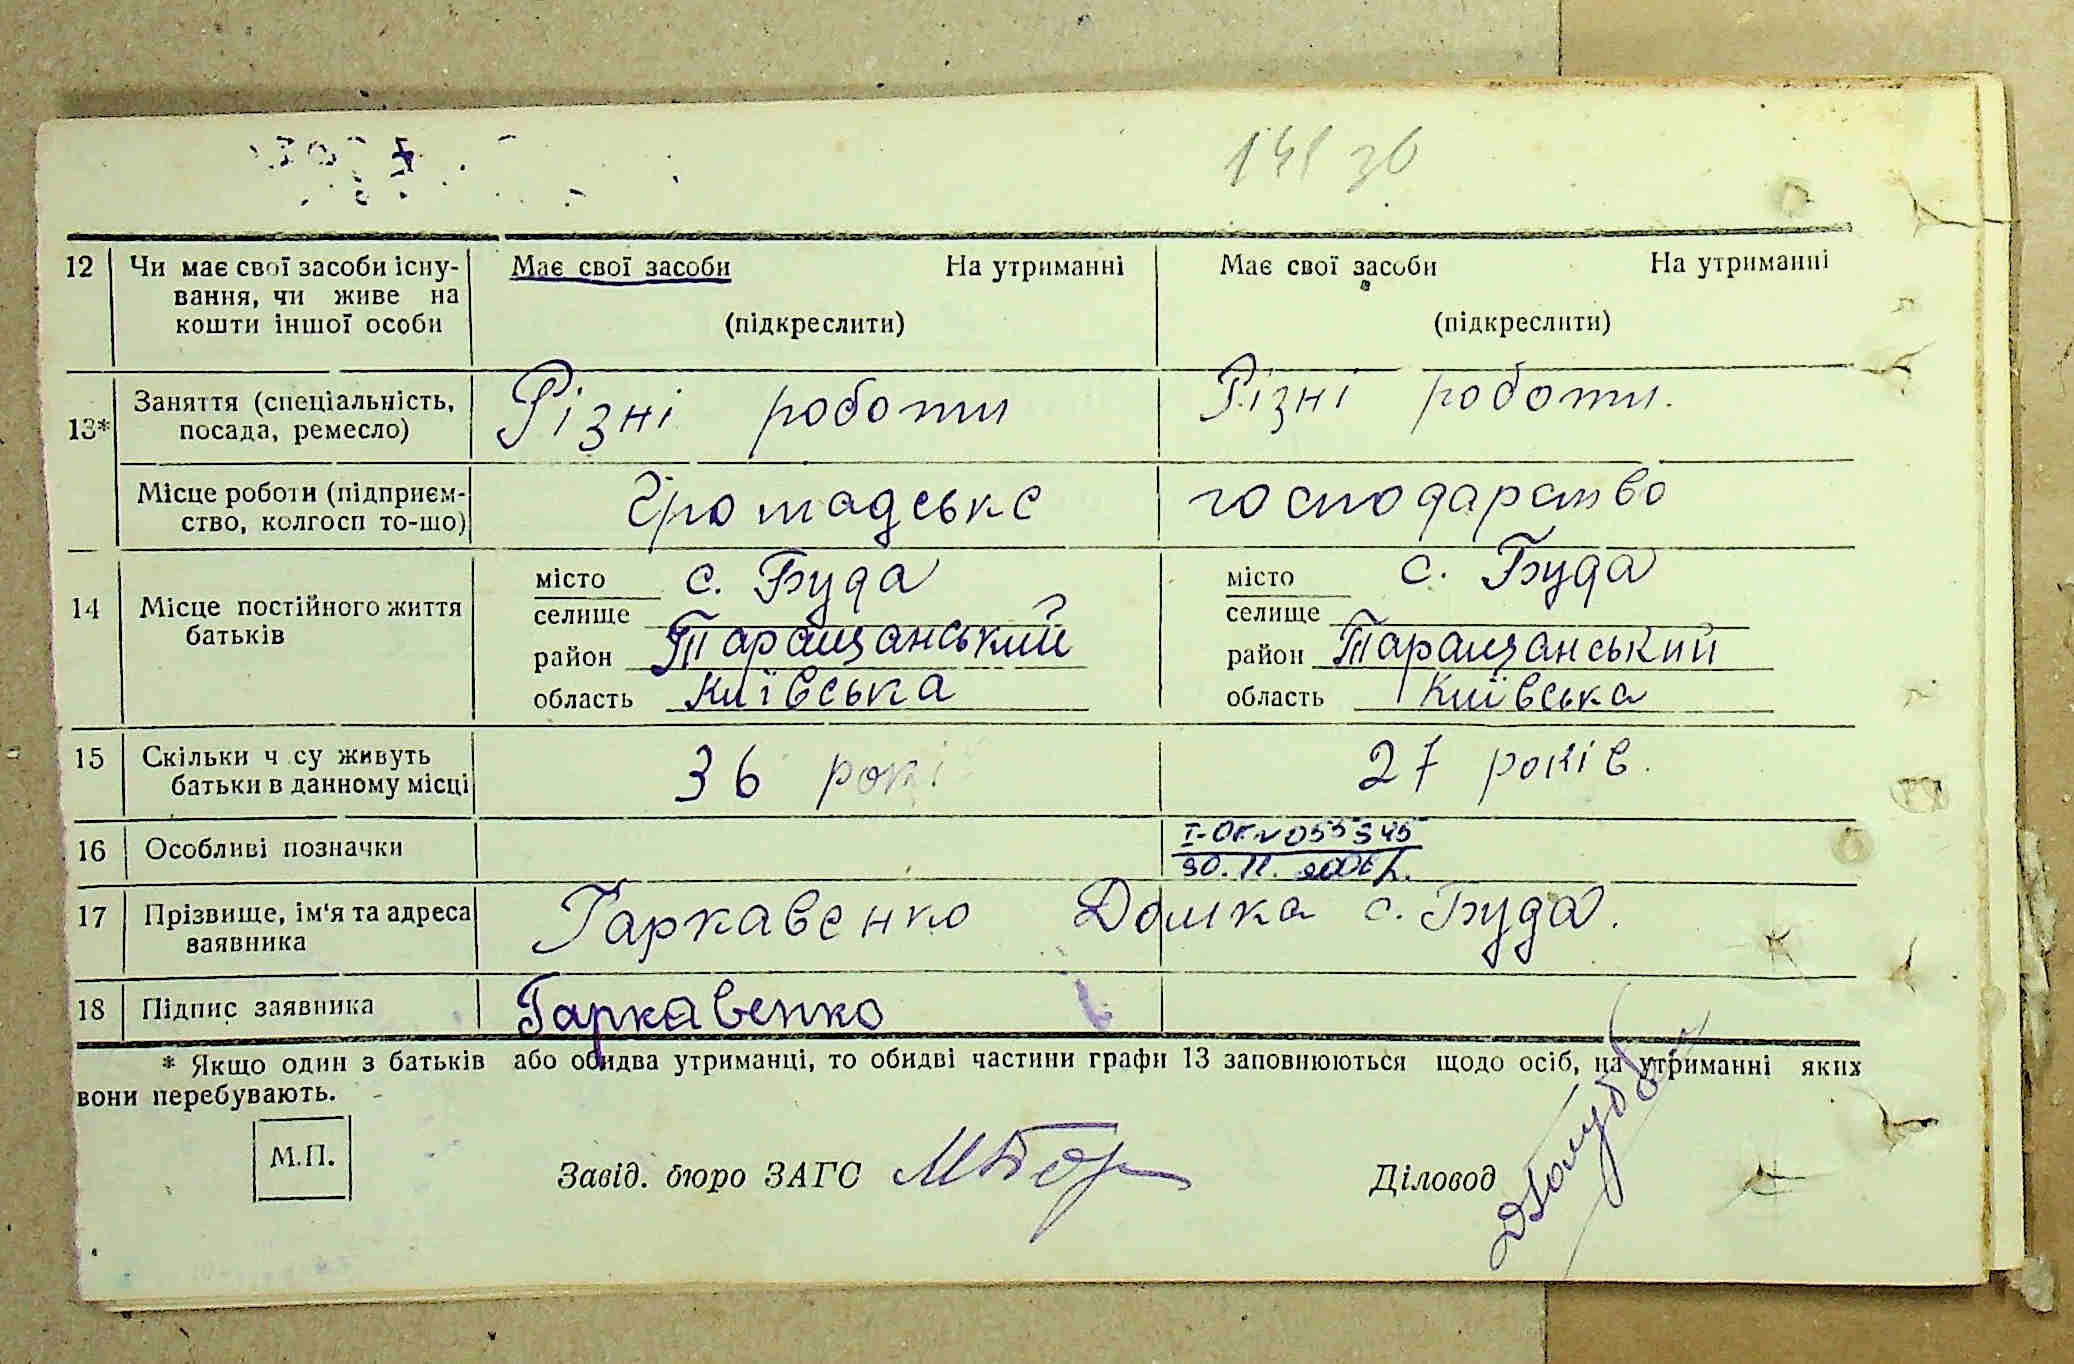 141 зв
12 Чи має свої засоби існу- Має свої засоби На утриманні Має свої засоби На утриманні
вання, чи живе на
кошти іншої особи (підкреслити) (підкреслити)
13* Заняття (спеціальність, Різні роботи Різні роботи.
посада, ремесло)
Місце роботи (підприєм- Громадське господарство
ство, колгосп то-що)
14 Місце постійного життя місто с. Буда місто с. Буда
батьків селище селище
район Таращанський район Таращанський
область Київська область Київська
15 Скільки ч су живуть 36 рокі 27 років.
батьки в данному місці
16 Особливі позначки
30.11.
17 Прізвище, ім'я та адреса Гаркавенко Домка с. Буда.
заявника
18 Підпис заявника Гаркавенко
* Якщо один з батьків або обидва утриманці, то обидві частини графи 13 заповнюються щодо осіб, на утриманні яких
вони перебувають.
М.П.
Завід. бюро ЗАГС Діловод